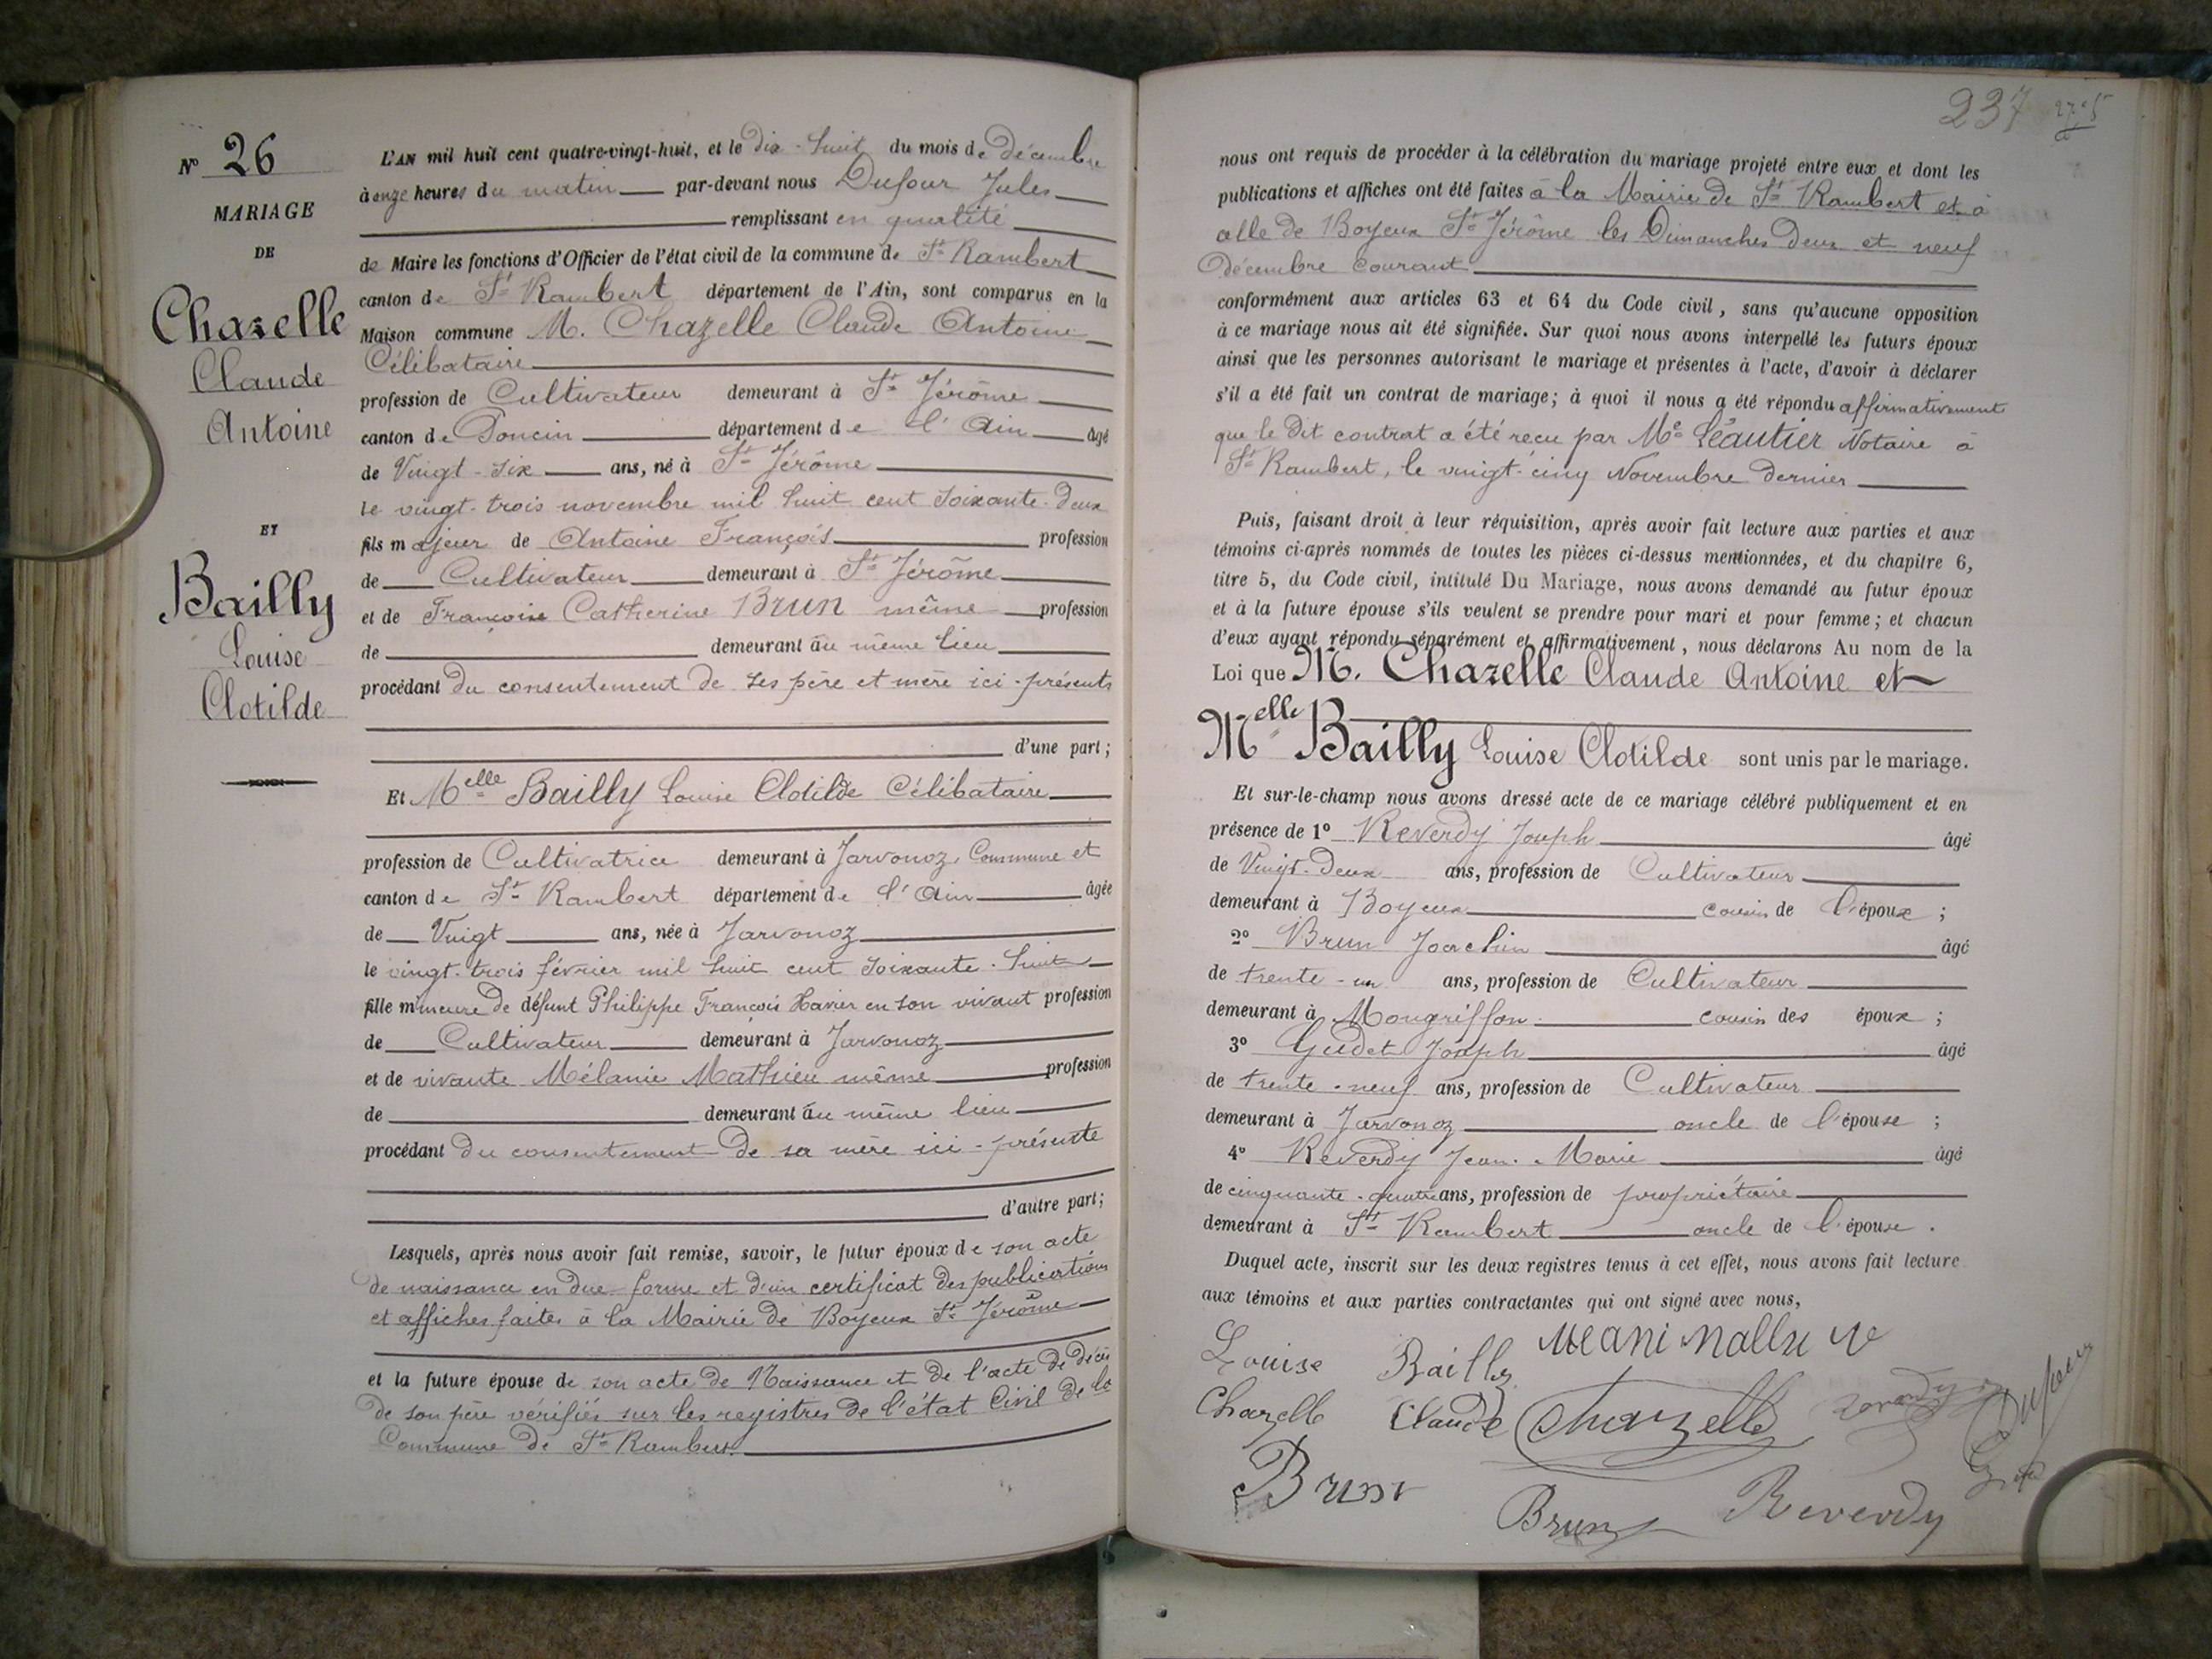 N° 26
MARIAGE
DE
Chazelle
Claude
Antoine
ET
Bailly
Louise
Clotilde
L'AN mil huit cent quatre-vingt-huit, et le dix-huit du mois de Décembre
à onze heures du matin par-devant nous Dufour Jules
remplissant en qualité
de Maire les fonctions d'Officier de l'état civil de la commune de St Rambert
canton de St Rambert département de l'Ain, sont comparus en la
Maison commune M. Chazelle Claude Antoine
Célibataire
profession de Cultivateur demeurant à St Jérôme
canton de Poncin département de l'Ain âgé
de Vingt-six ans, né à St Jérôme
le vingt-trois novembre mil huit cent soixante-deux
fils majeur de Antoine François profession
de Cultivateur demeurant à St Jérôme
et de Françoise Catherine Brun même profession
de demeurant au même lieu
procédant du consentement de ses père et mère ici-présents
d'une part;
Et Melle Bailly Louise Clotilde Célibataire
profession de Cultivatrice demeurant à Javornoz, Commune et
canton de St Rambert département de l'Ain âgée
de Vingt ans, née à Javornoz
le vingt-trois février mil huit cent soixante-huit
fille mineure de défunt Philippe François Xavier en son vivant profession
de Cultivateur demeurant à Javornoz
et de vivante Mélanie Mathieu même profession
de demeurant au même lieu
procédant du consentement de sa mère ici-présente
d'autre part;
Lesquels, après nous avoir fait remise, savoir, le futur époux de son acte
de naissance en due forme et d'un certificat des publications
et affiches faites à la Mairie de Boyeux St Jérôme
et la future épouse de son acte de Naissance et de l'acte de décès
de son père vérifiés sur les registres de l'état Civil de la
Commune de St Rambert.
237
nous ont requis de procéder à la célébration du mariage projeté entre eux et dont les
publications et affiches ont été faites à la Mairie de St Rambert et à
celle de Boyeux St Jérôme les Dimanches deux et neuf
Décembre courant
conformément aux articles 63 et 64 du Code civil, sans qu'aucune opposition
à ce mariage nous ait été signifiée. Sur quoi nous avons interpellé les futurs époux
ainsi que les personnes autorisant le mariage et présentes à l'acte, d'avoir à déclarer
s'il a été fait un contrat de mariage; à quoi il nous a été répondu affirmativement
que le dit contrat a été reçu par Me Léautier Notaire à
St Rambert, le vingt-cinq Novembre dernier
Puis, faisant droit à leur réquisition, après avoir fait lecture aux parties et aux
témoins ci-après nommés de toutes les pièces ci-dessus mentionnées, et du chapitre 6,
titre 5, du Code civil, intitulé Du Mariage, nous avons demandé au futur époux
et à la future épouse s'ils veulent se prendre pour mari et pour femme; et chacun
d'eux ayant répondu séparément et affirmativement, nous déclarons Au nom de la
Loi que M. Chazelle Claude Antoine et
Melle Bailly Louise Clotilde sont unis par le mariage.
Et sur-le-champ nous avons dressé acte de ce mariage célébré publiquement et en
présence de 1° Reverdy Joseph âgé
de Vingt-deux ans, profession de Cultivateur
demeurant à Boyeux cousin de l'époux ;
2° Brun Joachim âgé
de trente-un ans, profession de Cultivateur
demeurant à Mongriffon cousin des époux ;
3° Gudet Joseph âgé
de trente-neuf ans, profession de Cultivateur
demeurant à Javornoz oncle de l'épouse ;
4° Reverdy Jean-Marie âgé
de cinquante-quatre ans, profession de propriétaire
demeurant à St Rambert oncle de l'épouse .
Duquel acte, inscrit sur les deux registres tenus à cet effet, nous avons fait lecture
aux témoins et aux parties contractantes qui ont signé avec nous,
Louise Bailly
Chazelle Claude Chazelle Dufour
Brun
Brun Reverdy